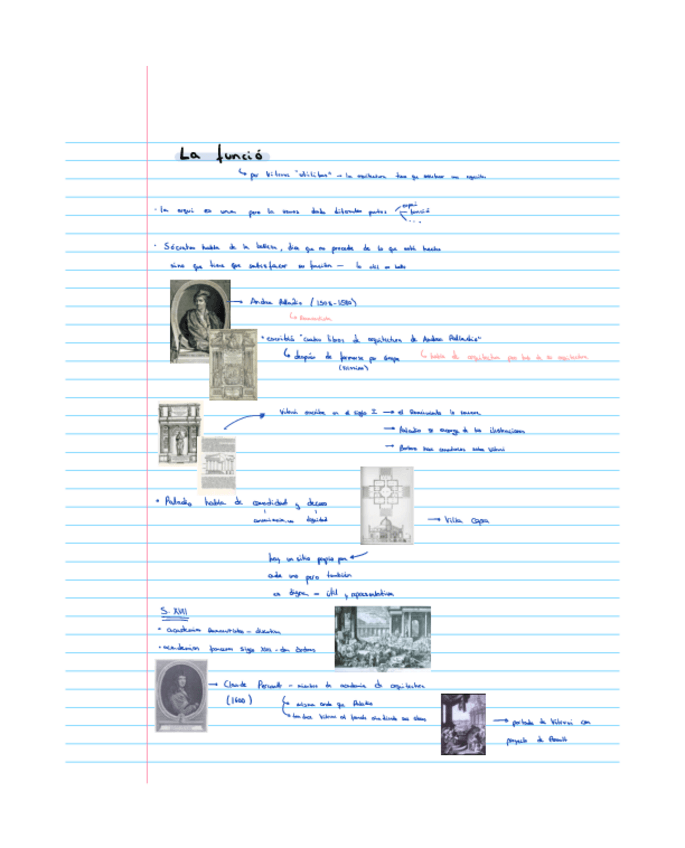 La funció
↳ por Vitruvi "utilitas" → la arquitectura tiene que
· La arqui es una pero la vemos desde diferentes puntos
espai
funció
...
· Sócrates habla de la belleza, dice que no procede de lo que está hecho
sino que tiene que satisfacer su función — lo útil es bello
→ Andrea Palladio (1508-1580)
↳ Renacentista
· escribió "cuatro libros de arquitectura de Andrea Palladio"
↳ después de formarse por Europa
↳ habla de arquitectura por de su arquitectura
Vitruvi escribe en el siglo I → el Renacimiento lo
→ Palladio se encarga de las ilustraciones
→ Barbaro hace comentarios sobre Vitruvi
· Palladio habla de comodidad y decoro
conveniencia dignidad
→ Villa Capra
hay un sitio propio para
cada uno pero también
es digna = útil y representativa
S. XVII
· academias Renacentistas - discutian
· academias francesas siglo XVII - dan
→ Claude Perrault - miembro de academia de arquitectura
(1600)
↳ misma onda que Palladio
↳ traduce Vitruvi al francés
→ portada de Vitruvi con
proyecto de Perrault